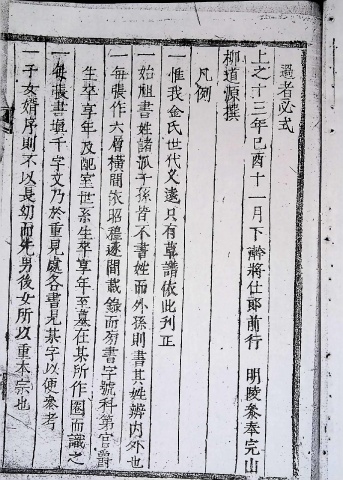 過者必式
上之十三年己酉十一月下澣將仕郎前行 明陵參奉完山
柳道源撰
凡例
一惟我金氏世代久遠只有草譜依此刊正
一始祖書姓諸派子孫皆不書姓而外孫則書其姓辨內外也
一每張作六層橫間依昭穆逐間載錄而旁書字號科第官爵
生卒享年及配室世系生卒享年至墓在某所作圈而識之
一每張書塡千字文乃於重見處各書見某字以便參考
一子女婿序則不以長幼而先男後女所以重本宗也